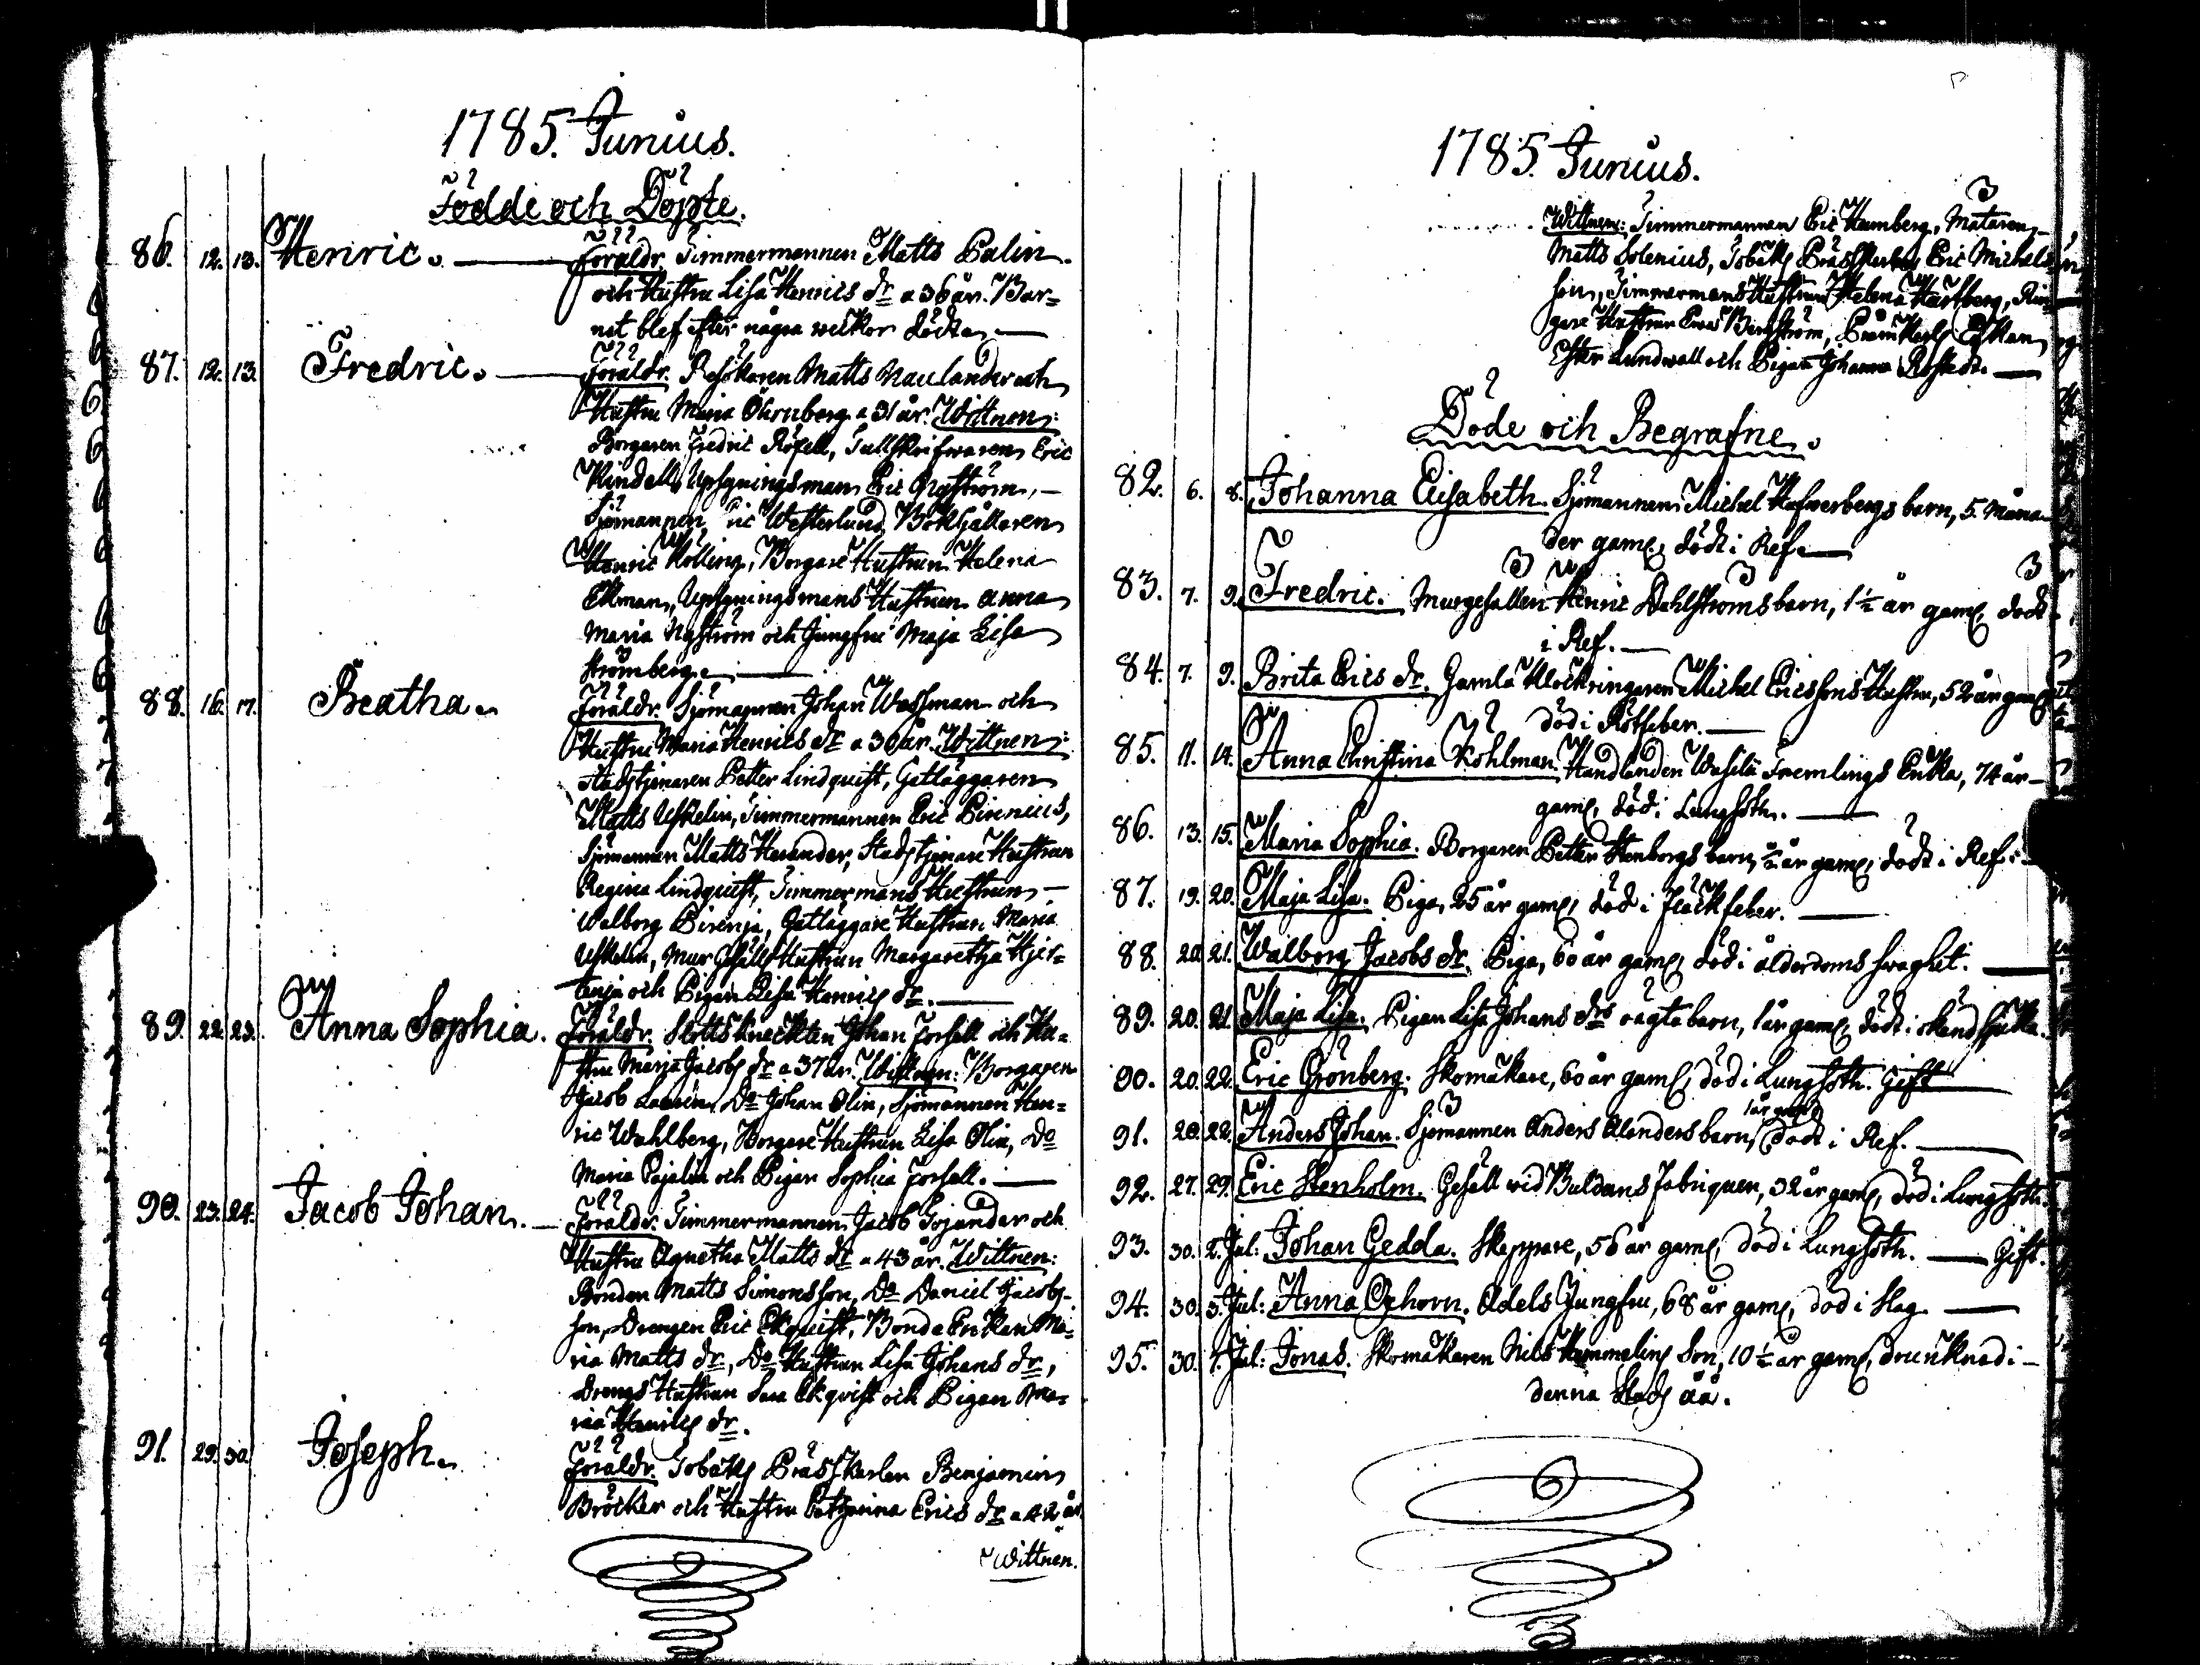 1785. Junius.
Födde och Döpte.
86. 12. 13. Henric. Föräldr. Timmermannen Matts Palin
och Hustru Lisa Henrics dr a 36 år. Bar=
net blef efter några weckor dödt.
87. 12. 13. Fredric. Föräldr. Matts Naulander och
Hustru Maria Öhrnberg a 31 år. Wittnen:
Borgaren Fredric Rosell, Tullskrifwaren Eric
Kindell, Upsyningsman Eric Nyström,
Sjömannen Eric Westerlund, Bokhållaren
Henric Holling, Borgare Hustrun Helena
Ekman, Upsyningsmans Hustrun Anna
Maria Nyström och Jungfru Maja Lisa
Strömberg.
88. 16. 17. Beatha. Föräldr. Sjömannen Johan Wassman och
Hustru Maria Henrics dr a 30 år. Wittnen:
Stadstjenaren Petter Lindquist, Gatläggaren
Matts Uskelin, Timmermannen Eric Pirenius,
Sjömannen Matts Herander, Stadstjenare Hustrun
Regina Lindquist, Timmermans Hustrun
Walborg Pirenja, Gatläggare Hustrun Maria
Uskelin, Mur Gesälls Hustrun Margaretha Hjer=
tenja och Pigan Lisa Henrics dr.
89. 22. 23. Anna Sophia. Föräldr. Slottskneckten Johan Forsell och Hu=
stru Maria Jacobs dr a 37 år. Wittnen: Borgaren
Jacob Do Johan Olin, Sjömannen Hen=
ric Wahlberg, Borgare Hustrun Lisa Olin, Do
Maria Pajalin och Pigan Sophia Forsell.
90. 23. 24. Jacob Johan. Föräldr. Timmermannen Jacob Gojander och
Hustru Agnetha Matts dr a 43 år. Wittnen:
Bonden Matts Simonsson, Do Daniel Jacobs=
son, Drengen Eric Ekquist, Bonde Enkan Ma=
ria Matts dr, Do Hustrun Lisa Johans dr,
Drengs Hustrun Sara Ekqvist och Pigan Ma=
ria Henrics dr.
91. 29. 30. Joseph. Föräldr. Tobaks Präss Karlen Benjamin
Bröcker och Hustru Catharina Erics dr a 42 år
Wittnen.
1785. Junius.
Wittnen: Timmermannen Eric Hamberg, Mätaren
Matts Solenius, Tobaks Präss Karlen Eric Michels
son, Timmermans Hustrun Helena Hartberg, Rin=
gare Hustrun Bergström, Enkan
Ester Lundwall och Pigan Johanna Röstedt.
Döde och Begrafne.
82. 6. 8. Johanna Elisabeth. Sjömannen Michel Hafwerbergs barn, 5. måna=
der gaml, dödt i Ref.
83. 7. 9. Fredric. Murgesällen Henric Dahlströms barn, 1½ år gaml, dödt
i Ref.
84. 7. 9. Brita Erics dr. Gamla Klockringaren Michel Ericssons Hustru, 52 år gaml
död i Rötfeber.
85. 11. 14. Anna Christina Kohlman. Handlanden Wasilii Fremlings Enka, 74 år
gaml, död i Lungsoth.
86. 13. 15. Maria Sophia. Borgaren Petter Stenborgs barn, ½ år gaml, dödt i Ref.
87. 19. 20. Maja Lisa. Piga, 25 år gaml, död i fläckfeber.
88. 20. 21. Walborg Jacobs dr. Piga, 60 år gaml, död i ålderdoms swaghet.
89. 20. 21. Maja Lisa. Pigan Lisa Johans drs oägta barn, 1 år gaml, dödt i okänd sjukd.
90. 20. 22. Eric Grönberg. Skomakare, 60 år gaml, död i Lungsoth. Gift
91. 20. 22. Anders Johan. Sjömannen Anders Alanders barn, 1 år gaml, dödt i Ref.
92. 27. 29. Eric Stenholm. Gesäll wid Buldans Fabriquen, 32 år gaml, död i Lungsoth.
93. 30. 2. Jul: Johan Gedda. Skeppare, 56 år gaml, död i Lungsoth. Gift.
94. 30. 3. Jul: Anna Oghorn. Adels Jungfru, 68 år gaml, död i slag
95. 30. 1. Jul: Jonas. Skomakaren Nils Hemmelins Son, 10½ år gaml, drunknad i
denna Stads åå.